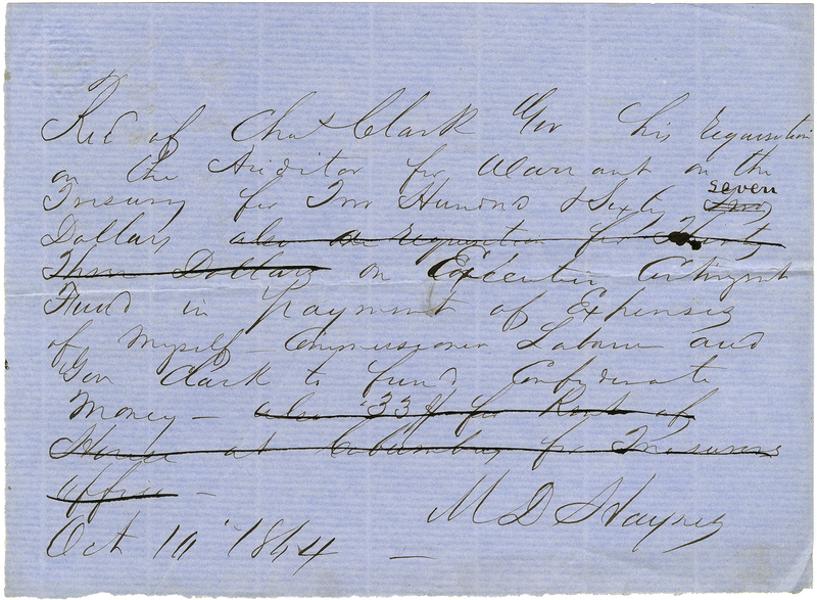 Recd of Chas Clark Gov his Requisition
on the Auditor for Warrant on the
Treasury for Two Hundred & Sixty seven
Dollars also an requisition for Thirty
Three Dollars on Executive Contingent
Fund in payment of Expenses
of Myself – Commissioner Labauve and
Gov Clark to fund Confederate
Money – also 33 $ for Rent of
House at Columbus for Treasurers
office –
M D Haynes
Oct 10 1864 –